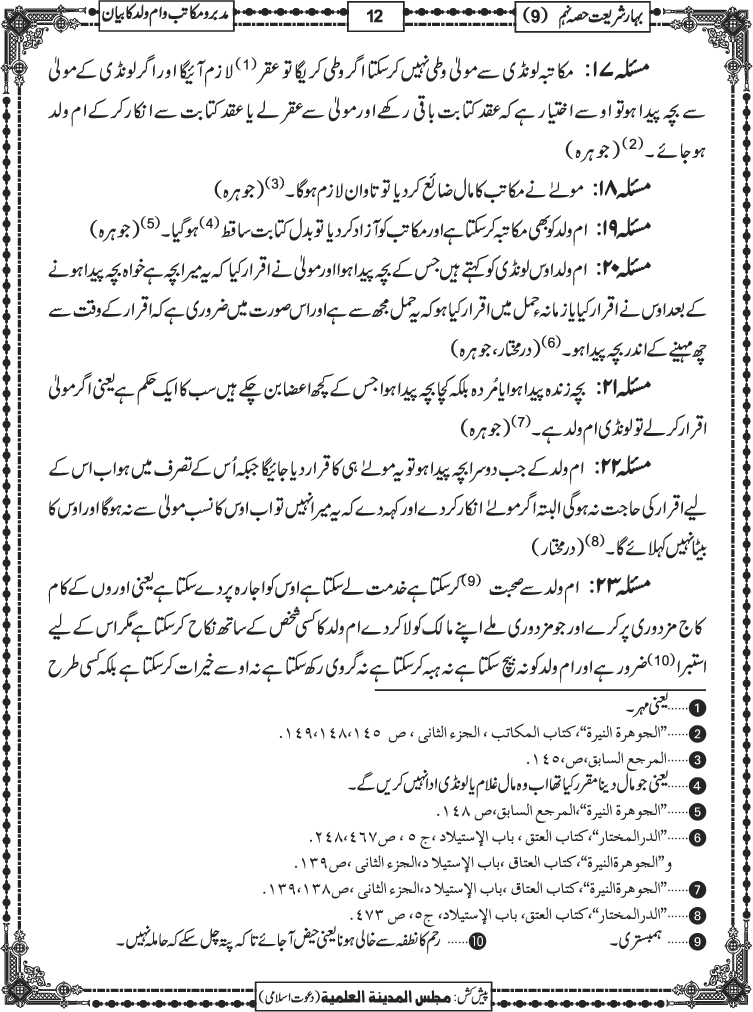 بہار شریعت حصہ نہم (9)
12
مدبر و مکاتب و ام ولد کا بیان
مسئلہ ۱۷: مکاتبہ لونڈی سے مولیٰ وطی نہیں کرسکتا اگر وطی کریگا تو عقر (1) لازم آئیگا اور اگر لونڈی کے مولیٰ
سے بچہ پیدا ہو تو اوسے اختیار ہے کہ عقد کتابت باقی رکھے اور مولیٰ سے عقر لے یا عقد کتابت سے انکار کرکے ام ولد
ہوجائے۔(2) (جوہرہ)
مسئلہ ۱۸: مولےٰ نے مکاتب کا مال ضائع کردیا تو تاوان لازم ہوگا۔(3) (جوہرہ)
مسئلہ ۱۹: ام ولد کو بھی مکاتبہ کرسکتا ہے اور مکاتب کو آزاد کردیا تو بدل کتابت ساقط (4) ہوگیا۔(5) (جوہرہ)
مسئلہ ۲۰: ام ولد اوس لونڈی کو کہتے ہیں جس کے بچہ پیدا ہوا اور مولیٰ نے اقرار کیا کہ یہ میرا بچہ ہے خواہ بچہ پیدا ہونے
کے بعد اوس نے اقرار کیا یا زمانۂ حمل میں اقرار کیا ہو کہ یہ حمل مجھ سے ہے اور اس صورت میں ضروری ہے کہ اقرار کے وقت سے
چھ مہینے کے اندر بچہ پیدا ہو۔(6) (درمختار، جوہرہ)
مسئلہ ۲۱: بچہ زندہ پیدا ہوا یا مُردہ بلکہ کچا بچہ پیدا ہوا جس کے کچھ اعضا بن چکے ہیں سب کا ایک حکم ہے یعنی اگر مولیٰ
اقرار کرلے تو لونڈی ام ولد ہے۔(7) (جوہرہ)
مسئلہ ۲۲: ام ولد کے جب دوسرا بچہ پیدا ہو تو یہ مولےٰ ہی کا قرار دیا جائیگا جبکہ اُس کے تصرف میں ہو اب اس کے
لیے اقرار کی حاجت نہ ہوگی البتہ اگر مولےٰ انکار کردے اور کہہ دے کہ یہ میرا نہیں تو اب اوس کا نسب مولیٰ سے نہ ہوگا اور اوس کا
بیٹا نہیں کہلائے گا۔(8) (درمختار)
مسئلہ ۲۳: ام ولد سے صحبت (9) کرسکتا ہے خدمت لے سکتا ہے اوس کو اجارہ پر دے سکتا ہے یعنی اوروں کے کام
کاج مزدوری پر کرے اور جو مزدوری ملے اپنے مالک کو لا کر دے ام ولد کا کسی شخص کے ساتھ نکاح کرسکتا ہے مگر اس کے لیے
استبرا (10) ضرور ہے اور ام ولد کو نہ بیچ سکتا ہے نہ ہبہ کرسکتا ہے نہ گروی رکھ سکتا ہے نہ اوسے خیرات کرسکتا ہے بلکہ کسی طرح
1 ......یعنی مہر۔
2 ......”الجوهرة النيرة“، كتاب المكاتب، الجزء الثانى، ص ١٤٩،١٤٨،١٤٥.
3 ......المرجع السابق،ص،١٤٥.
4 ......یعنی جو مال دینا مقرر کیا تھا اب وہ مال غلام یا لونڈی ادا نہیں کریں گے۔
5 ......”الجوهرة النيرة“،المرجع السابق،ص ١٤٨.
6 ......”الدرالمختار“،كتاب العتق ، باب الإستيلاد ،ج ٥ ، ص٢٤٨،٤٦٧.
و”الجوهرةالنيرة“،كتاب العتاق ،باب الإستيلا د،الجزء الثانى ،ص١٣٩.
7 ......”الجوهرةالنيرة“،كتاب العتاق ،باب الإستيلا د،الجزء الثانى ،ص١٣٩،١٣٨.
8 ......”الدرالمختار“،كتاب العتق، باب الإستيلاد، ج٥، ص ٤٧٣.
9 ......ہمبستری۔
10 ......رحم کا نطفہ سے خالی ہونا یعنی حیض آجائے تاکہ پتہ چل سکے کہ حاملہ نہیں۔
پیش کش: مجلس المدينة العلمية (دعوت اسلامی)